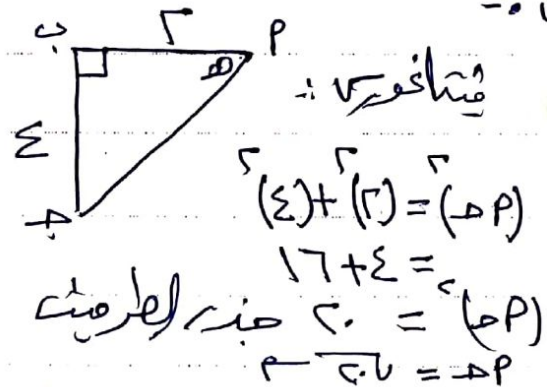 ب ٢ م
هـ
٤
جـ
فيتاغورس :
(م جـ)٢ = (٢)٢ + (٤)٢
= ٤ + ١٦
(م جـ)٢ = ٢٠ جذر الطرفين
م جـ = √٢٠ م